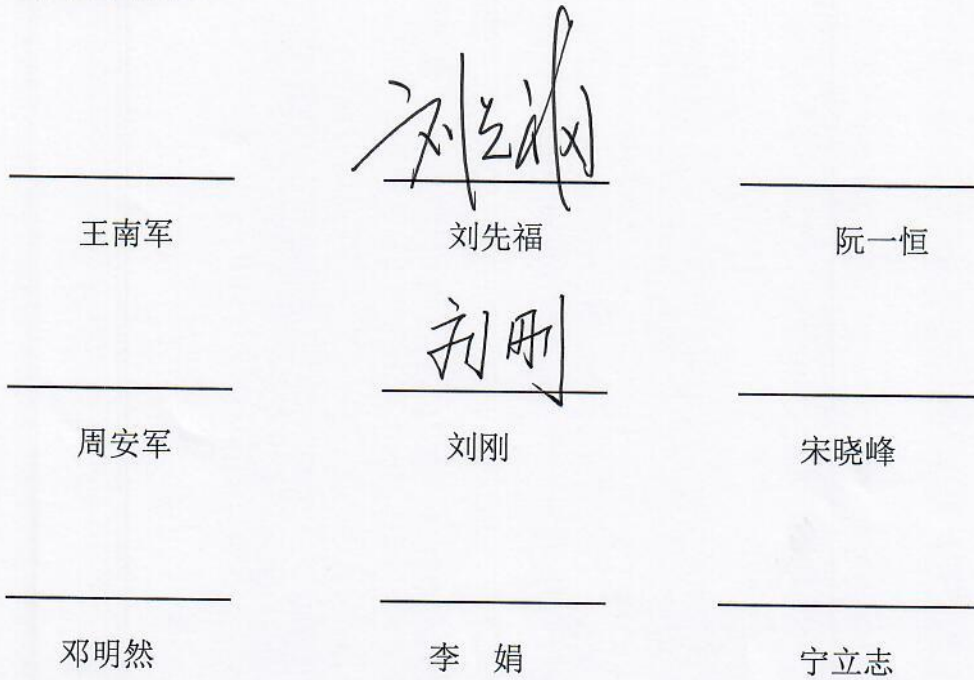 刘先福
王南军 刘先福 阮一恒
刘刚
周安军 刘刚 宋晓峰
邓明然 李 娟 宁立志